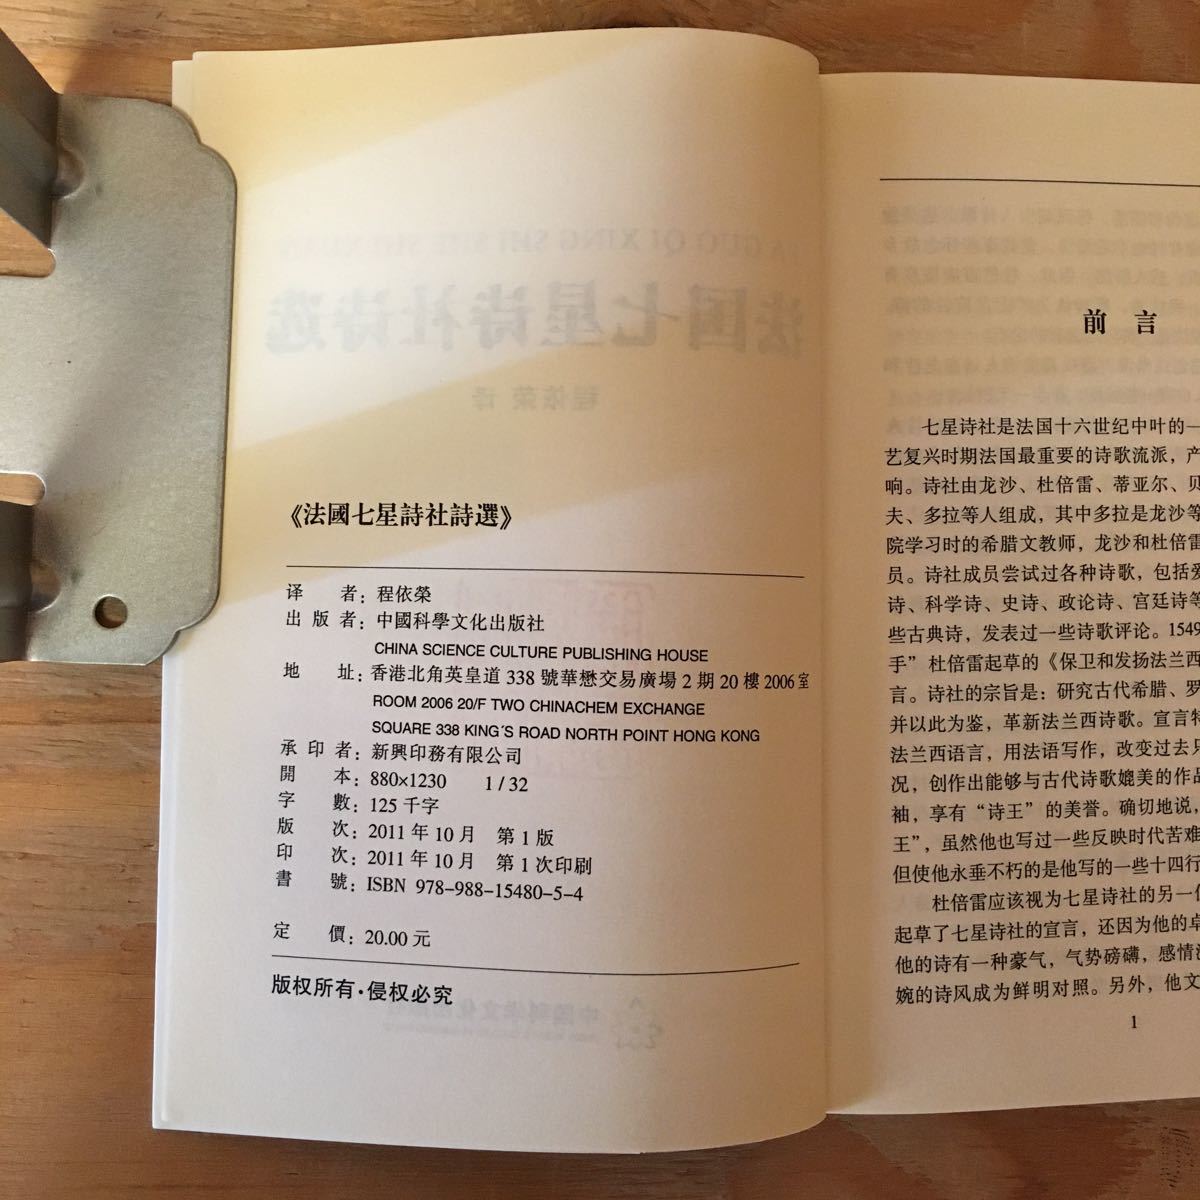 《法國七星詩社詩選》
译 者：程依榮
出 版 者：中國科學文化出版社
CHINA SCIENCE CULTURE PUBLISHING HOUSE
地 址：香港北角英皇道 338 號華懋交易廣場 2 期 20 樓 2006 室
ROOM 2006 20/F TWO CHINACHEM EXCHANGE
SQUARE 338 KING'S ROAD NORTH POINT HONG KONG
承 印 者：新興印務有限公司
開 本：880×1230 1/32
字 數：125 千字
版 次：2011 年 10 月 第 1 版
印 次：2011 年 10 月 第 1 次印刷
書 號：ISBN 978-988-15480-5-4
定 價：20.00 元
版权所有·侵权必究
FA GUO QI XING SHI SHE SHI XUAN
法国七星诗社诗选
程依荣 译
前 言
七星诗社是法国十六世纪中叶的一
艺复兴时期法国最重要的诗歌流派，产
响。诗社由龙沙、杜倍雷、蒂亚尔、贝
夫、多拉等人组成，其中多拉是龙沙等
院学习时的希腊文教师，龙沙和杜倍雷
员。诗社成员尝试过各种诗歌，包括爱
诗、科学诗、史诗、政论诗、宫廷诗等
些古典诗，发表过一些诗歌评论。1549
手”杜倍雷起草的《保卫和发扬法兰西
言。诗社的宗旨是：研究古代希腊、罗
并以此为鉴，革新法兰西诗歌。宣言特
法兰西语言，用法语写作，改变过去只
况，创作出能够与古代诗歌媲美的作品
袖，享有“诗王”的美誉。确切地说，
王”，虽然他也写过一些反映时代苦难
但使他永垂不朽的是他写的一些十四行
杜倍雷应该视为七星诗社的另一位
起草了七星诗社的宣言，还因为他的卓
他的诗有一种豪气，气势磅礴，感情
婉的诗风成为鲜明对照。另外，他文
1